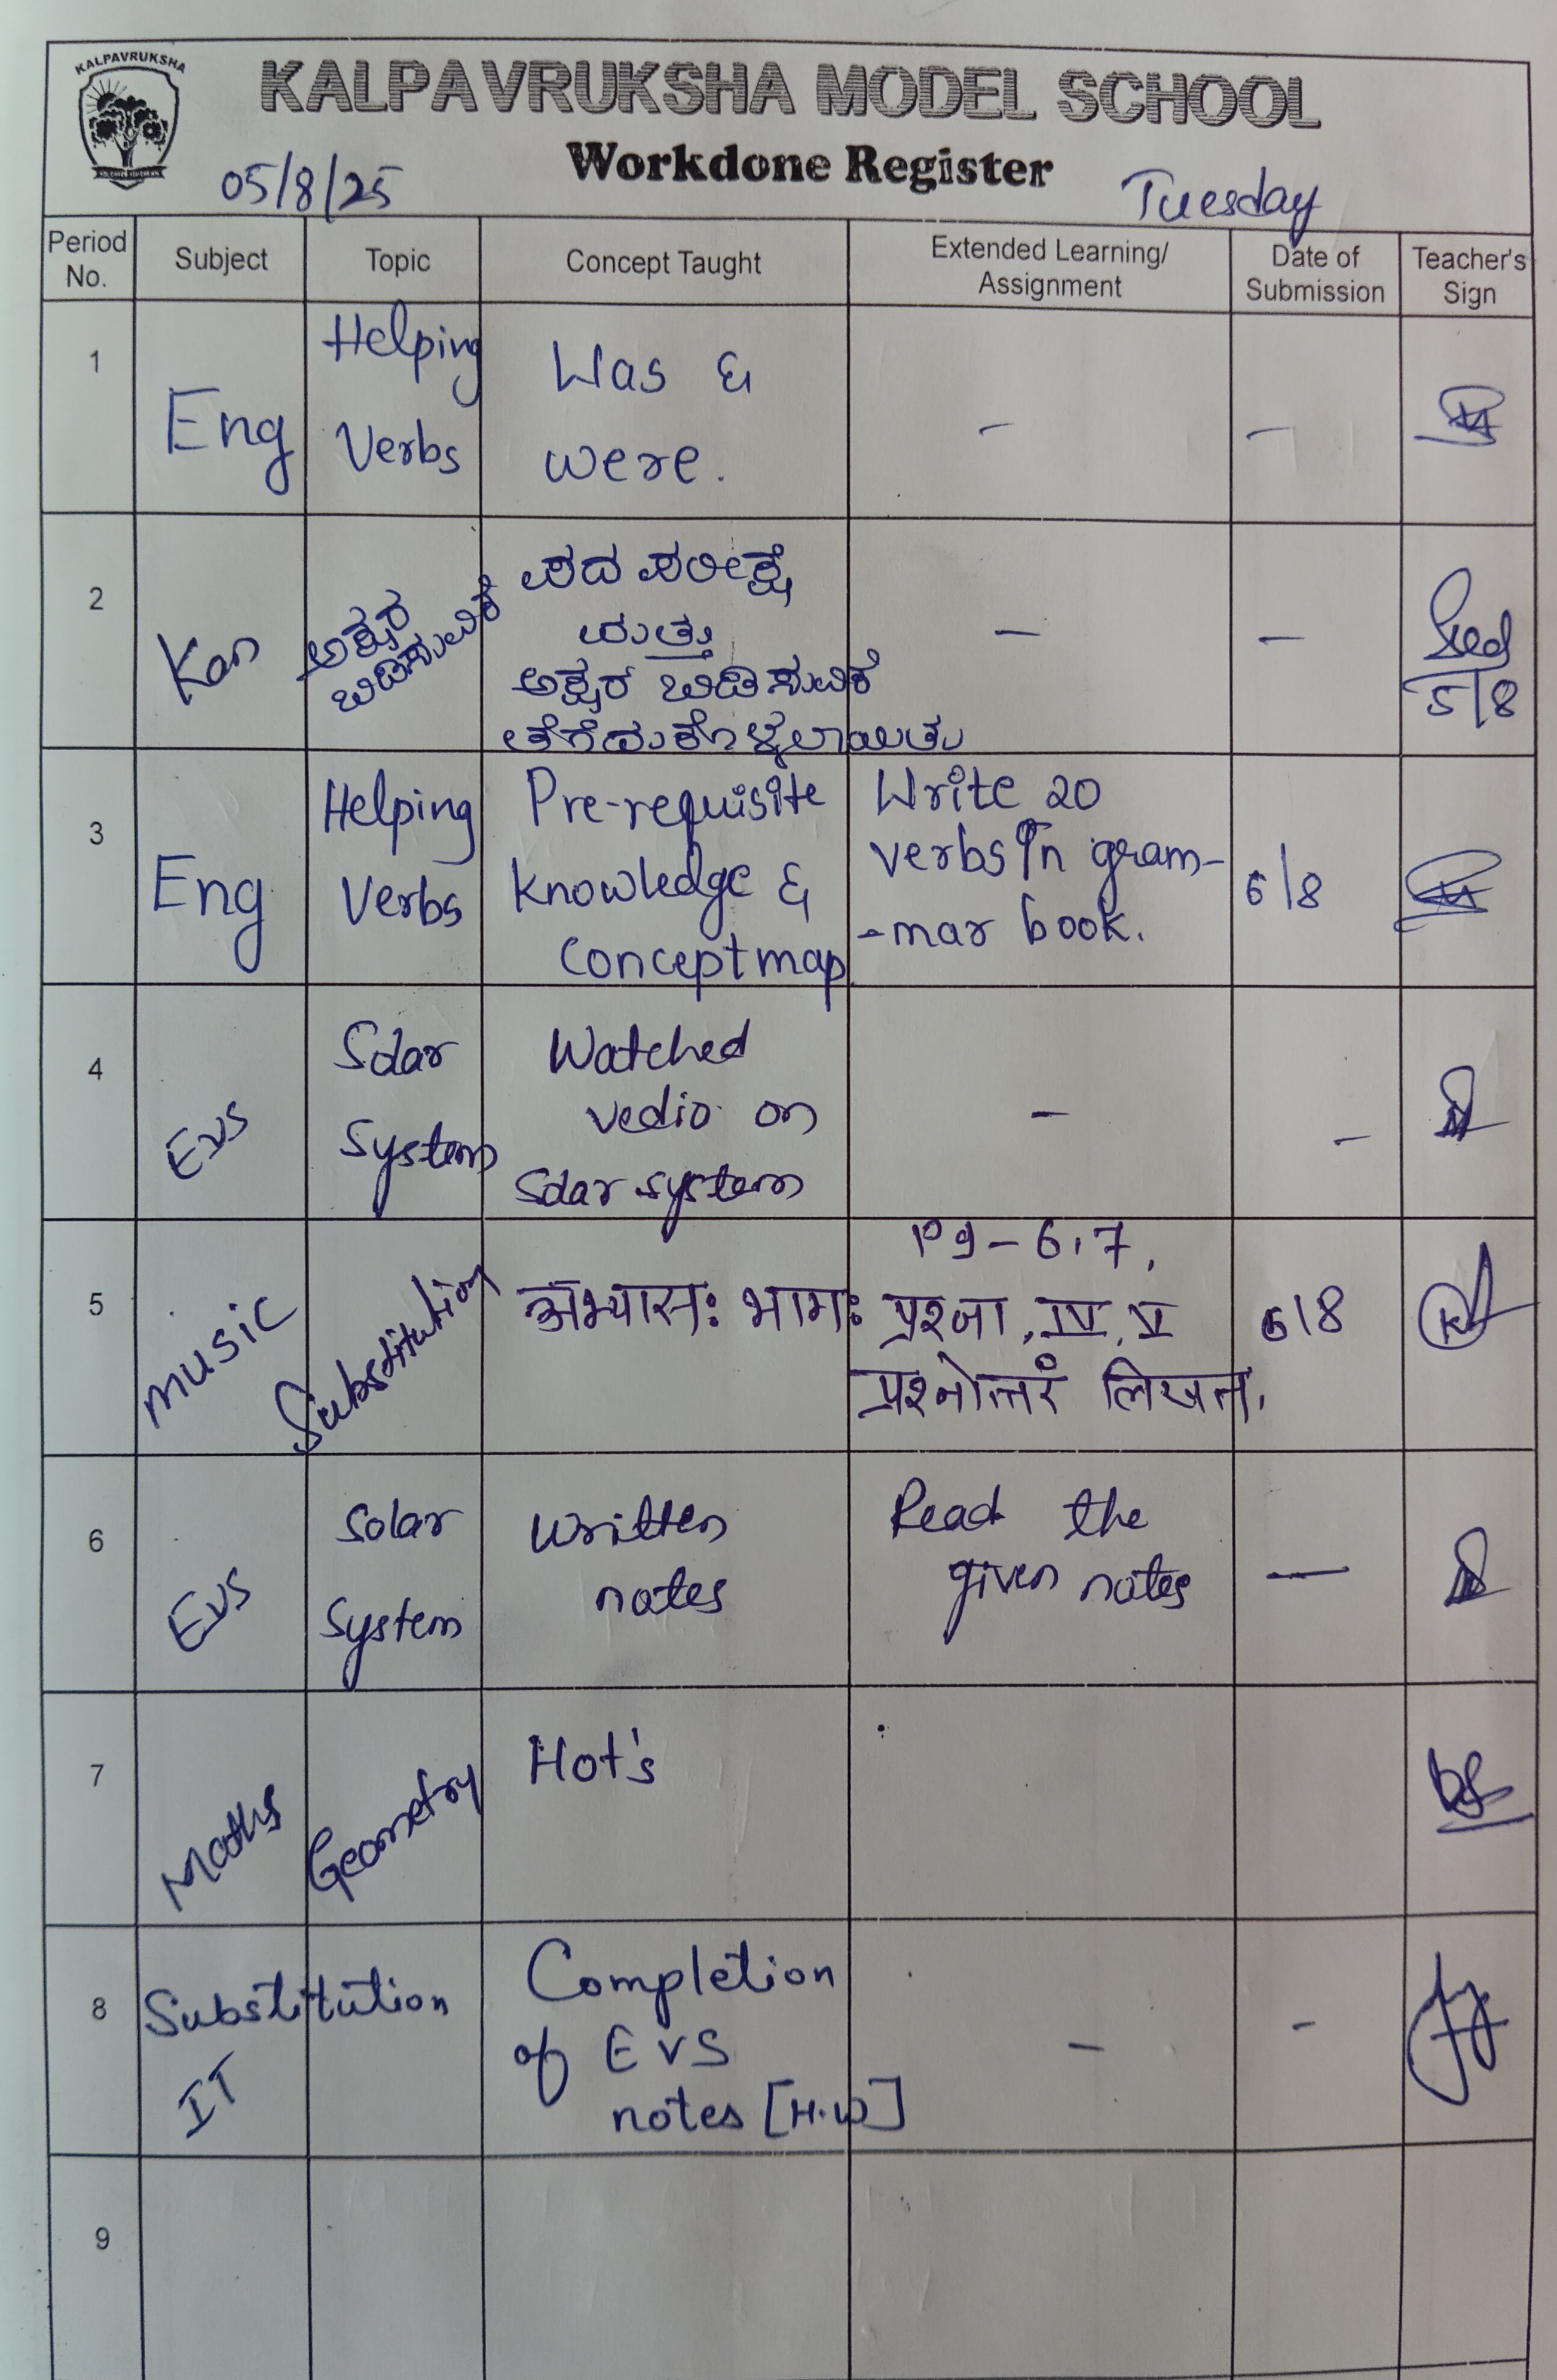 KALPAVRUKSHA
KALPAVRUKSHA MODEL SCHOOL
Workdone Register
05/8/25
Tuesday
Period No.
Subject
Topic
Concept Taught
Extended Learning/ Assignment
Date of Submission
Teacher's Sign
1
Eng
Helping
Verbs
Was &
were.
-
-
2
Kan
ಅಕ್ಷರ
ಬಿಡಿಸುವಿಕೆ
ಪದ ಪರೀಕ್ಷೆ
ಮತ್ತು
ಅಕ್ಷರ ಬಿಡಿಸುವಿಕೆ
ತೆಗೆದುಕೊಳ್ಳಲಾಯಿತು
-
-
5/8
3
Eng
Helping
Verbs
Pre-requisite
knowledge &
Concept map
Write 20
verbs in gram-
-mar book.
6/8
4
EVS
Solar
System
Watched
vedio on
Solar system
-
-
5
music
Substitution
अभ्यासः भागः
Pg-6,7,
प्रश्ना, IV, V
प्रश्नोत्तरं लिखत.
6/8
6
EVS
Solar
System
Written
notes
Read the
given notes
-
7
Maths
Geometry
Hot's
8
Substitution
IT
Completion
of EVS
notes [H.W]
-
-
9